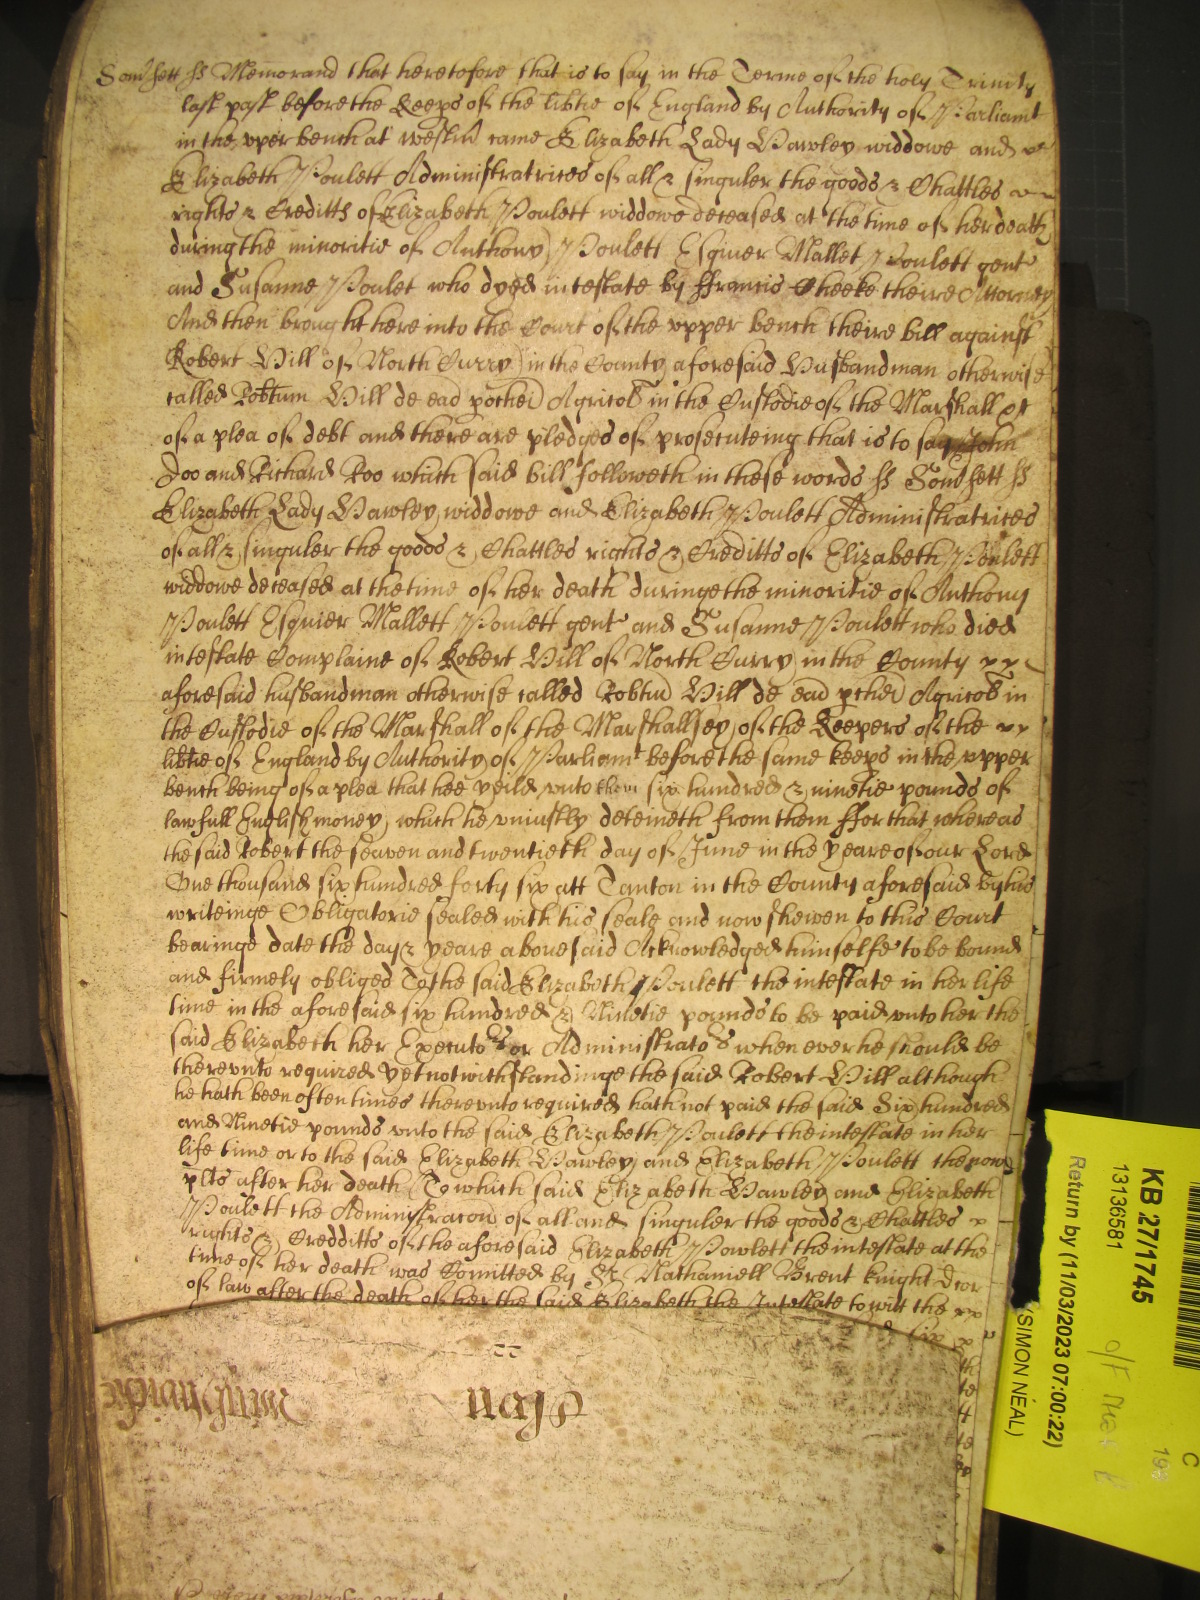 Som'sett ss Memorand that heretofore that is to say in the Terme of the holy Trinity
last past before the Keeps of the lib'tie of England by Authority of Parliamt
in the vper bench at westm' came Elizabeth Lady Hawley widdowe and
Elizabeth Poulett Administratrices of all & singuler the goods & Chattles
rights & Creditts of Elizabeth Poulett widdowe deceased at the time of her death
during the minoritie of Anthony Poulett Esquier Mallet Poulett gent
and Susanne Poulet who dyed intestate by ffrancis Cheeke theire Attorney
And then brought here into the Court of the vpper bench theire bill against
Robert Hill of North Curry in the County aforesaid Husbandman otherwise
called Rob'tum Hill de ead pochei Agricol' in the Custodie of the Marshall &c
of a plea of debt and there are pledges of prosecuteing that is to say John
Doo and Richard Roo which said bill followeth in these words ss Som'sett ss
Elizabeth Lady Hawley widdowe and Elizabeth Poulett Administratrices
of all & singuler the goods & Chattles rights & Creditts of Elizabeth Poulett
widdowe deceased at the time of her death duringe the minoritie of Anthony
Poulett Esquier Mallett Poulett gent and Susanne Poulett who died
intestate Complaine of Robert Hill of North Curry in the County
aforesaid husbandman otherwise called Rob'tu' Hill de ead pchei Agricol' in
the Custodie of the Marshall of the Marshallsey of the Keepers of the
lib'tie of England by Authority of Parliamt before the same keeps in the vpper
bench being of a plea that hee yeild vnto them six hundred & ninetie pounds of
lawfull English money which he vniustly deteineth from them ffor that whereas
the said Robert the seaven and twentieth day of June in the yeare of our Lord
One thousand six hundred forty six att Tanton in the County aforesaid by his
writeinge Obligatorie sealed with his seale and now shewen to this Court
bearinge date the day & yeare abouesaid Acknowledged himselfe to be bound
and firmely obliged To the said Elizabeth Poulett the intestate in her life
time in the aforesaid six hundred & Ninetie pounds to be paid vnto her the
said Elizabeth her Executors or Administrators when ever he should be
therevnto required yet notwithstandinge the said Robert Hill although
he hath been often times therevnto required hath not paid the said Six hundred
and Ninetie pounds vnto the said Elizabeth Poulett the intestate in her
life time or to the said Elizabeth Hawley and Elizabeth Poulett the now
plts after her death To which said Elizabeth Hawley and Elizabeth
Poulett the Administracon of all and singuler the goods & Chattles
rights & Credditts of the aforesaid Elizabeth Powlett the intestate at the
time of her death was Comitted by Sr Nathaniell Brent knight Dcor
of law after the death of her the said Elizabeth the Intestate to witt the
KB 27/1745
13136581
Return by (11/03/2023 07:00:22)
(SIMON NEAL)
C